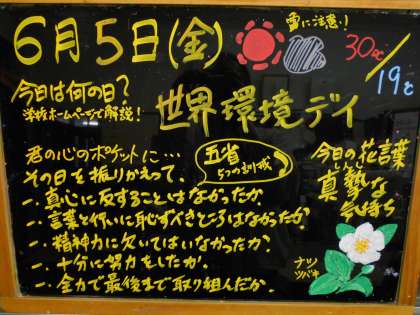 6月5日(金)
雷に注意!
30℃/19℃
今日は何の日?
学校ホームページで解説!
世界環境デイ
君の心のポケットに…
五省
5つの訓戒
その日を振りかえって、
一、真心に反することはなかったか
一、言葉と行いに恥ずべきところはなかったか
一、精神力に欠いてはいなかったか?
一、十分に努力をしたか、
一、全力で最後まで取り組んだか。
今日の花言葉
しんし
真摯な
気持ち
ナツ
ツバキ